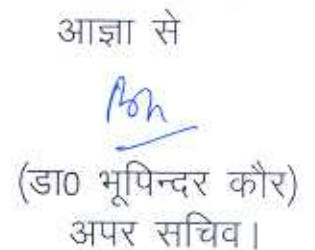 आज्ञा से
(डा0 भूपिन्दर कौर)
अपर सचिव।